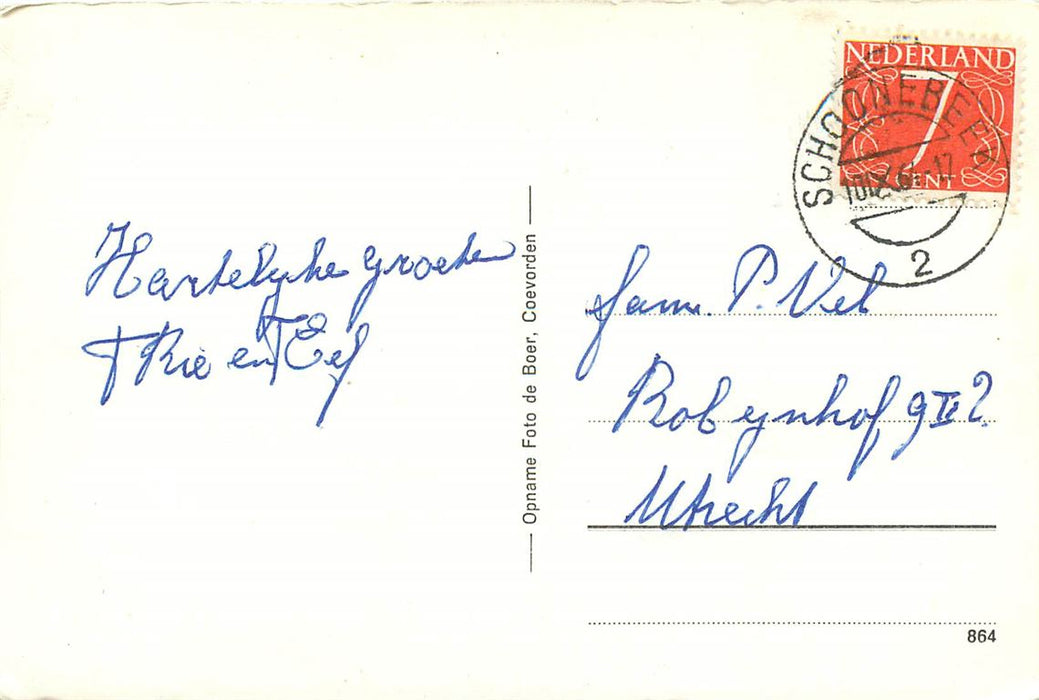 NEDERLAND
7
CENT
SCHOONEBEEK
2
Hartelyke groeten
Rie en Eef
Opname Foto de Boer, Coevorden
Fam. P. Vel
Robijnhof 9 II
Utrecht
864